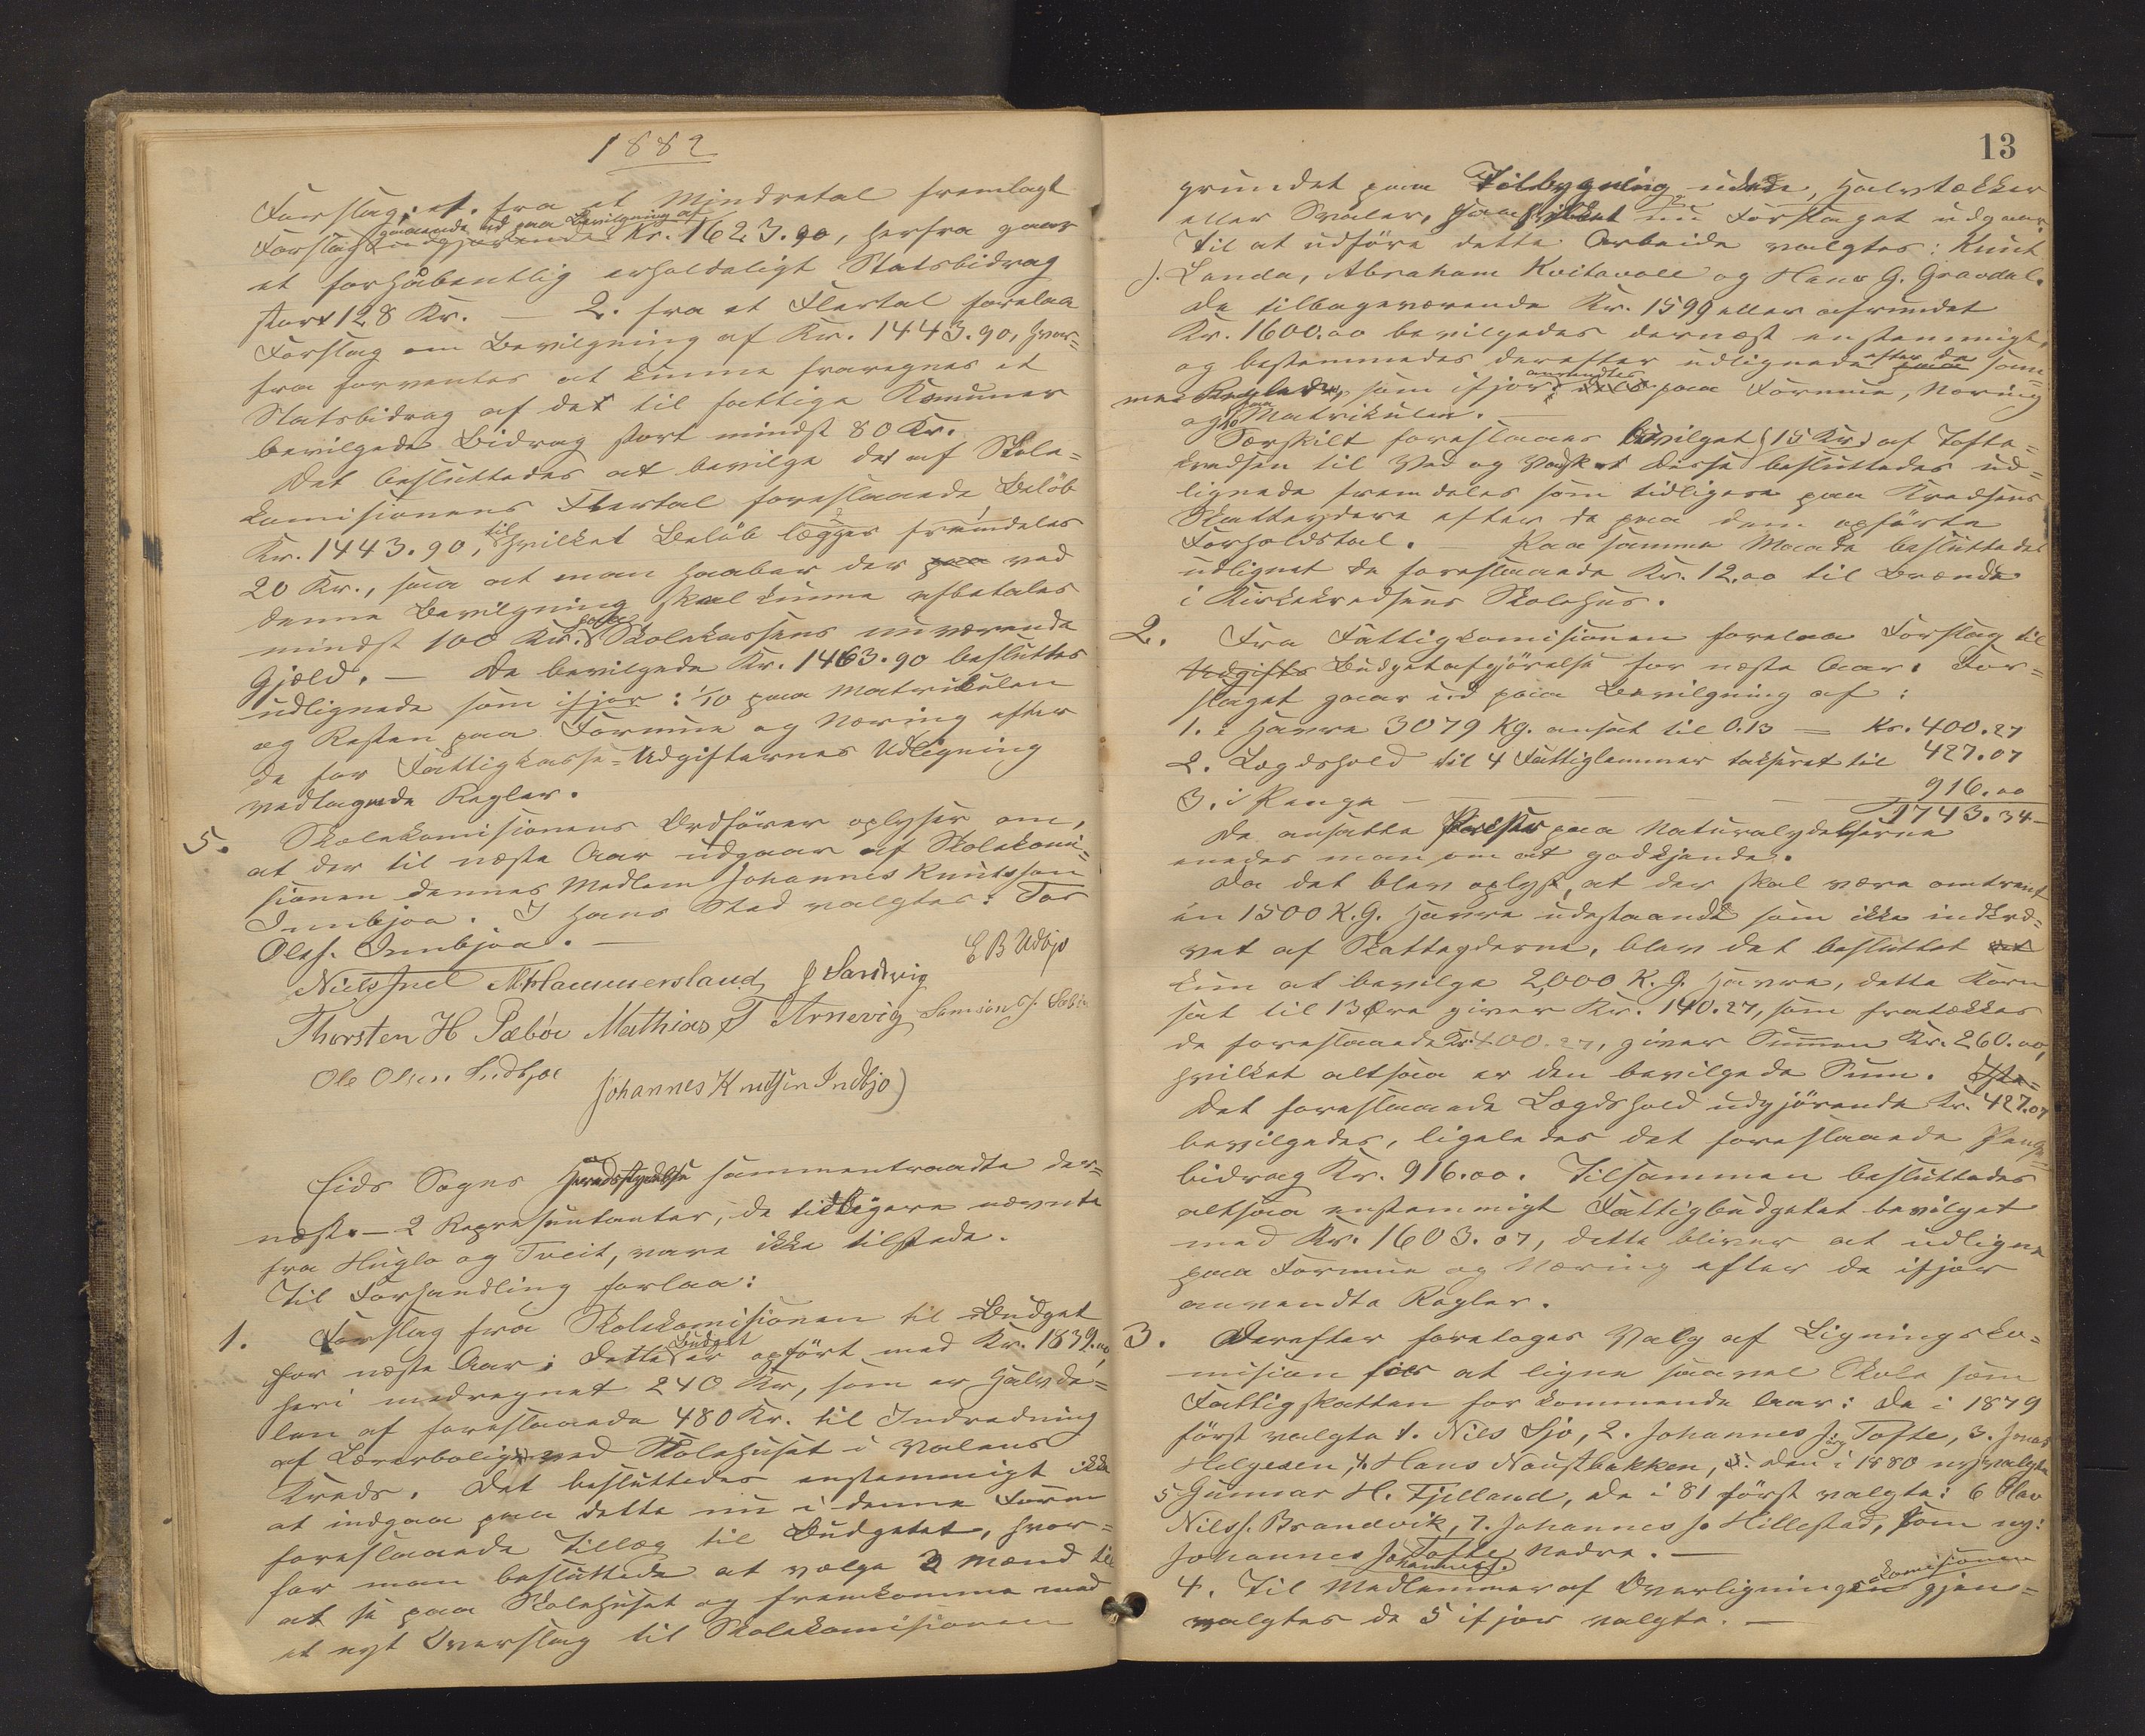 1882
Forslag, et. fra et Mindretal fremlagt
gaaende ud paa Bevilgning af
Forslag Kr. 1623.90, herfra gaar
et forhåbentlig erholdeligt Statsbidrag
stort 128 Kr. — 2. fra et Flertal forelaa
Forslag om Bevilgning af Kr. 1443.90, hvor=
fra forventes at kunne fraregnes et
Statsbidrag af det til fattige Komuner
bevilgede Bidrag stort mindst 80 Kr.
Det besluttedes at bevilge det af Skole=
komisionens Flertal foreslaaede Beløb
Kr. 1443.90, til hvilket Beløb lægges fremdeles
20 Kr., saa at man haaber der paa ved
denne Bevilgning skal kunne afbetales
mindst 100 Kr. paa Skolekassens nuværende
Gjæld. — De bevilgede Kr. 1463.90 besluttes
udlignede som ifjor: 1/10 paa Matrikulen
og Resten paa Formue og Næring efter
de for Fattigkasse=Udgifternes Udligning
vedtagede Regler.
5. Skolekomisionens Ordfører oplyser om,
at der til næste Aar udgaar af Skolekomi=
sionen dennes Medlem Johannes Knutsson
Innbjoa. I hans Sted valgtes: Tor
Olsf. Innbjoa. —
Niels Juel M Hammersland J Sandvig E B Udbjo
Thorsten H Sæbøe Mathias T Arnevig Samson J. Sæbø
Ole Olsen Indbjoe Johannes Knutsen Indbjo
Eids Sogns Heredsstyrelse sammentraadte der=
næst. — 2 Repræsentanter, de tidligere nævnte
fra Huglo og Tveit, vare ikke tilstede.
Til Forhandling forlaa:
1. Forslag fra Skolekomisionen til Budget
for næste Aar; dette Budget er opført med Kr. 1839.00,
heri medregnet 240 Kr, som er Halvde=
len af foreslaaede 480 Kr. til Indredning
af Lærerbolig ved Skolehuset i Valens
Kreds. Det besluttedes enstemmigt ikke
at indgaa paa dette nu i denne Form
foreslaaede Tillæg til Budgetet, hvor=
for man besluttede at vælge 3 Mænd til
at se paa Skolehuset og fremkomme med
et nyt Overslag til Skolekomisionen
13
grundet paa Tilbygning udvide, Halvtækker
eller Svaler, nu Forslaget udgaar.
Til at udføre dette Arbeide valgtes: Knut
J. Landa, Abraham Kvitavoll og Hans G. Gravdal.
De tilbageværende Kr. 1599 eller afrundet
Kr. 1600.00 bevilgedes dernæst enstemmigt,
og bestemmedes derefter udlignede efter de sam=
me Regler, som ifjor anvendtes paa Formue, Næring
og paa Matrikulen. —
Særskilt foreslaaes bevilget (15 Kr) af Tofte=
kredsen til Ved og Vask disse besluttedes ud=
lignede fremdeles som tidligere paa Kredsens
Skatteydere efter de paa dem opførte
Forholdstal. — Paa samme Maade besluttedes
udlignet de foreslaaede Kr. 12.00 til Brænde
i Kirkekredsens Skolehus.
2. Fra Fattigkomisionen forelaa Forslag til
Udgifts Budgetafgjørelse for næste Aar. For=
slaget gaar ud paa Bevilgning af:
1. i Havre 3079 Kg. ansat til 0.13 — Kr. 400.27
2. Lægdshold til 4 Fattiglemmer takseret til 427.07
3. i Penge — — — 916.00
1743.34
De ansatte Priser paa Naturalydelserne
enedes man om at godkjende.
Da det blev oplyst, at der skal være omtrent
en 1500 K.G. Havre udestaaende som ikke indkræ=
vet af Skatteyderne, blev det besluttet at
kun at bevilge 2,000 K.G. Havre, dette Korn
sat til 13 Øre giver Kr. 140.27, som fratækkes
de foreslaaede Kr. 400.27, giver Summen Kr. 260.00,
hvilket altsaa er den bevilgede Sum.
Det foreslaaede Lægdshold udgjørende Kr. 427.07
bevilgedes, ligeledes det foreslaaede Penge=
bidrag Kr. 916.00. Tilsammen besluttedes
altsaa enstemmigt Fattigbudgetet bevilget
med Kr. 1603.07, dette bliver at udligne
paa Formue og Næring efter de ifjor
anvendte Regler.
3. Derefter foretoges Valg af Ligningsko=
mision for at ligne saavel Skole som
Fattigskatten for kommende Aar: De i 1879
først valgte 1. Nils Sjo, 2. Johannes J. Tofte, 3. Jonas
Helgesen, 4. Hans Naustbakken, den i 1880 nyvalgte
5 Gunnar H. Fjelland, de i 81 først valgte: 6 Olav
Nilss. Brandvik, 7. Johannes J. Hillestad, som ny:
Johannes Johannesf. Tofte nedre. —
4. Til Medlemmer af Overligningskomisionen gjen=
valgtes de 5 ifjor valgte. —